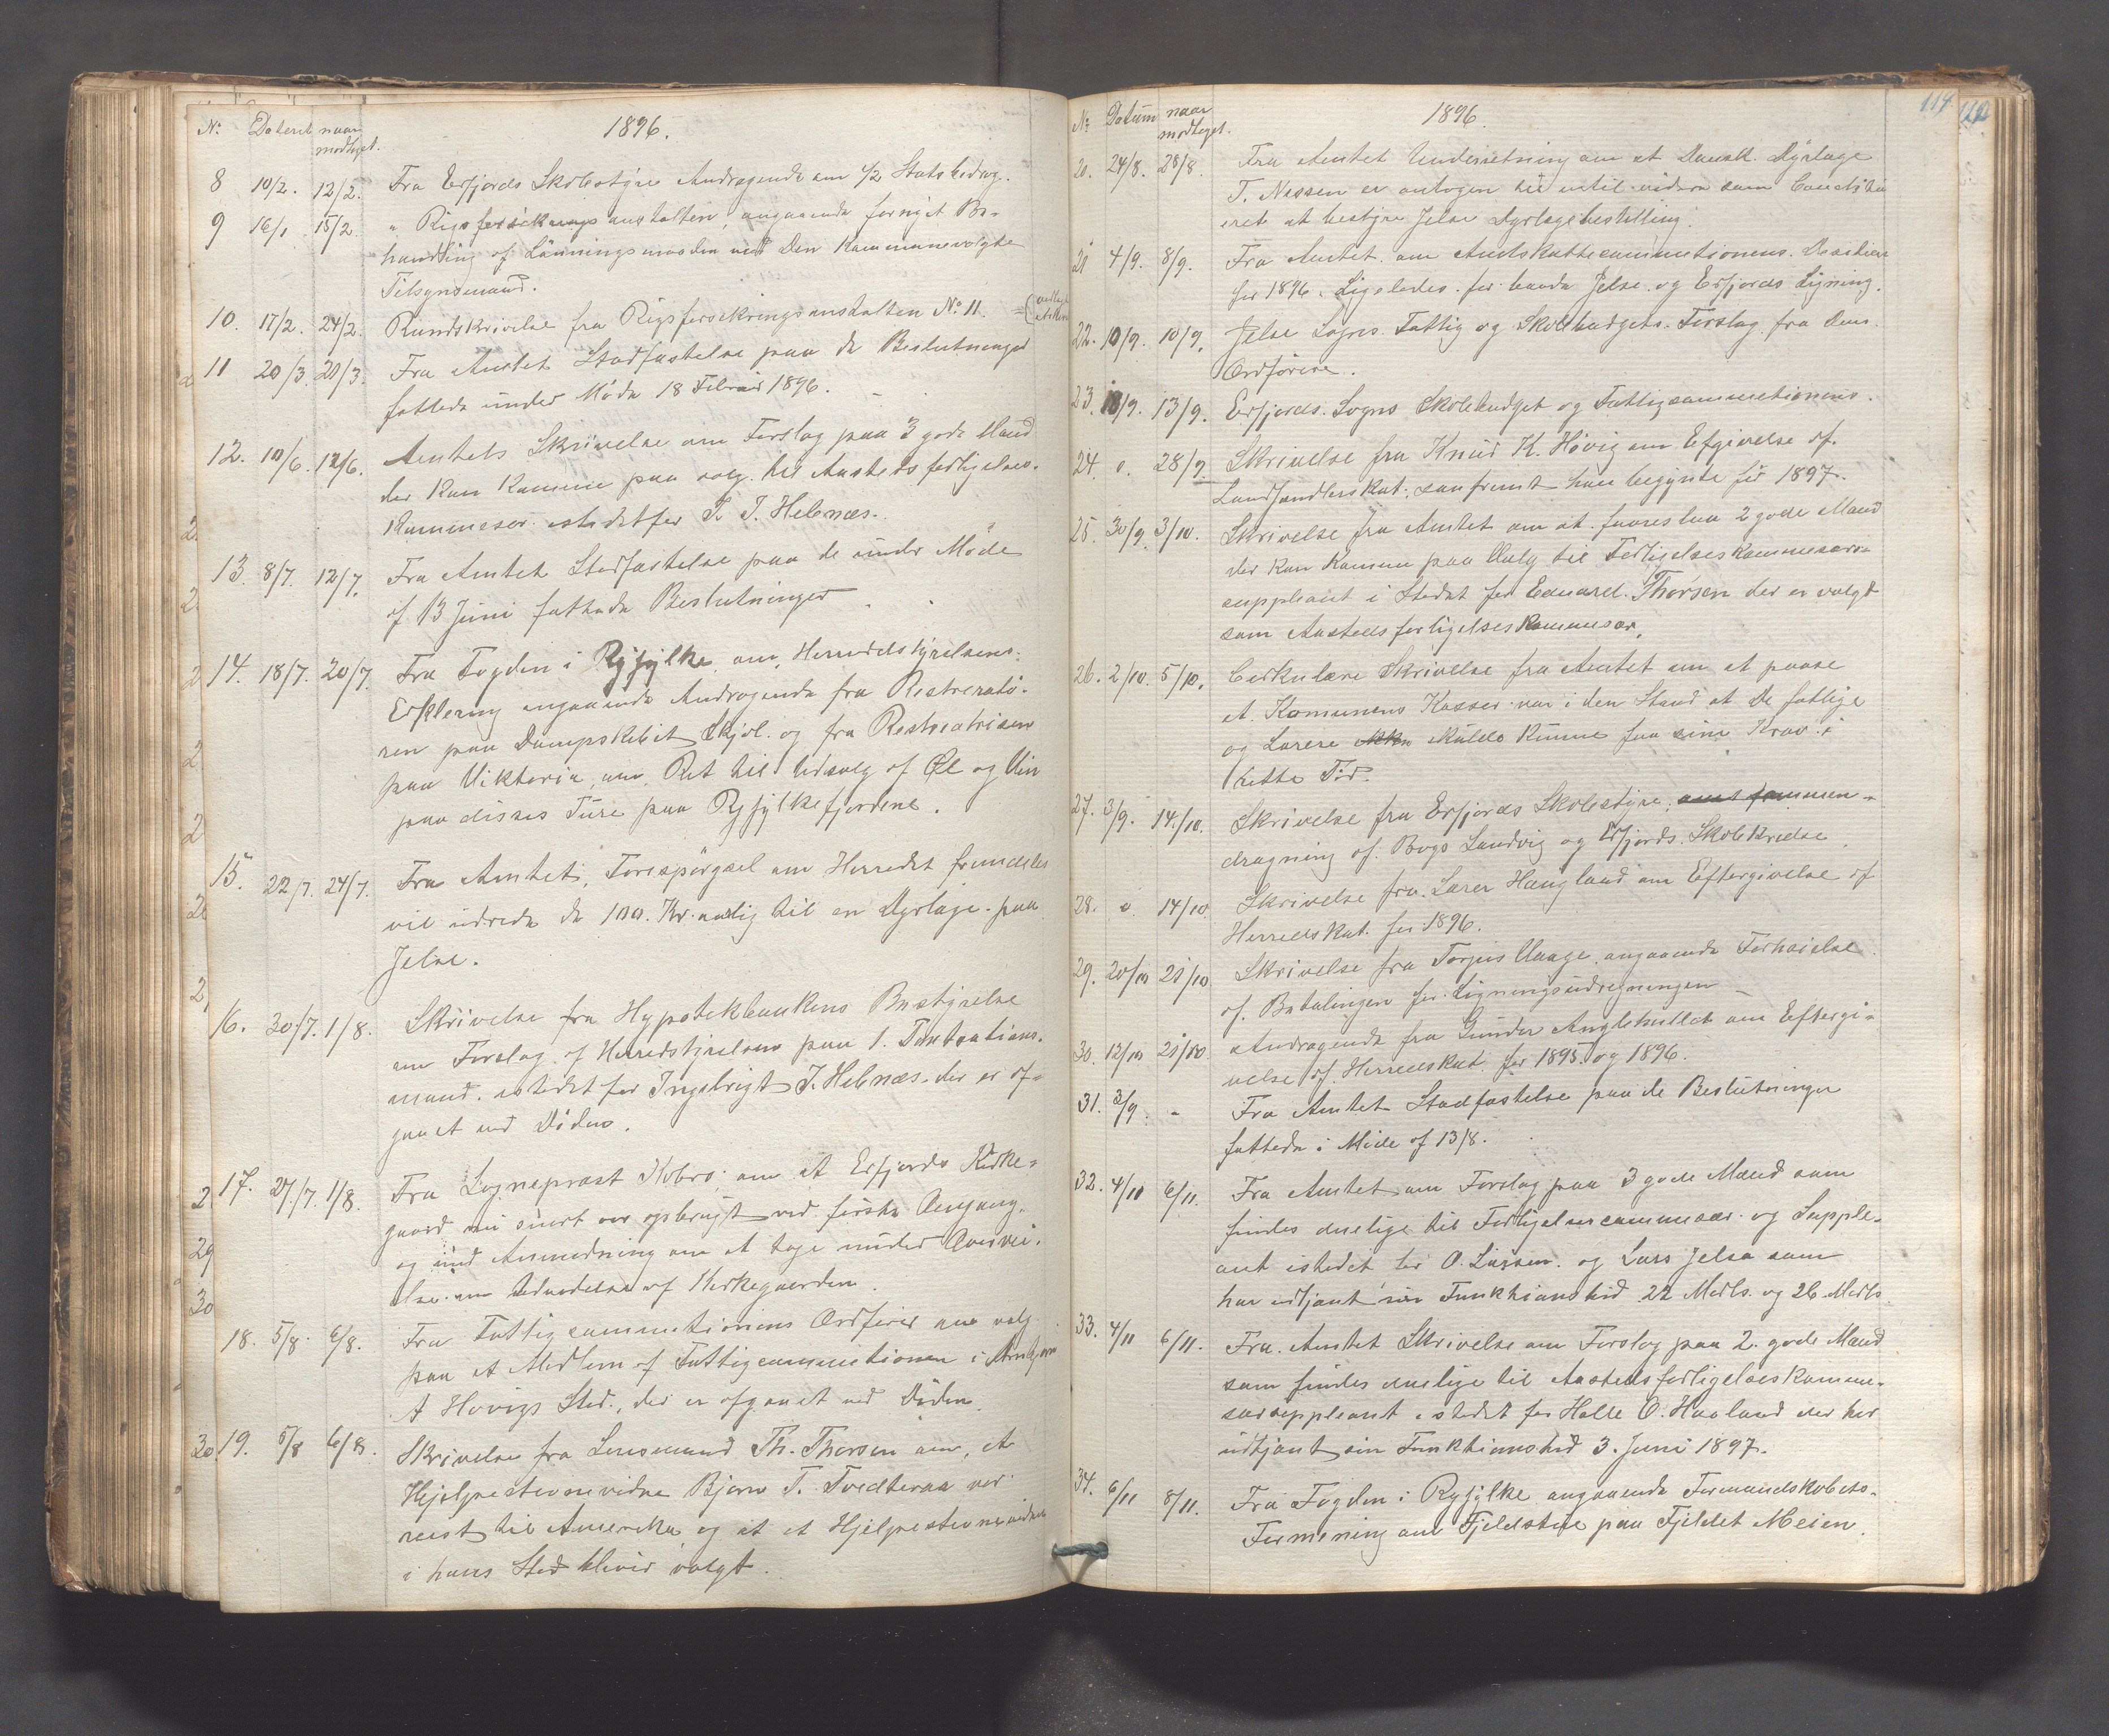 No Dateret naar
modtaget.
1896.
8 10/2. 12/2. Fra Erfjords Skolestyre Andragende om 1/2 Statsbidrag.
9 16/1 15/2 " Rigsforsikringsanstalten, angaaende fornyet Be-
handling af Lønningsmaaden ved Den Kommunevalgte
Tilsynsmand.
10. 17/2. 24/2. Rundskrivelse fra Rigsforsikringsanstalten No 11.
11 20/3. 20/3. Fra Amtet Stadfæstelse paa de Beslutninger
fattede under Møde 18 Februar 1896.
12. 10/6. 12/6. Amtets Skrivelse om Forslag paa 3 gode Mænd
der kan komme paa valg til Aasteds forligelses-
kommesær istedetfor T. Helenæs.
13. 8/7. 12/7. Fra Amtet Stadfæstelse paa de under Møde
af 13 Juni fattede Beslutninger
14. 18/7. 20/7. Fra Fogden i Ryfylke om Herredsstyrelsens
Erklering angaaende Andragende fra Restreratø-
ren paa Dampskibet Skjol. og fra Restoratrisen
paa Viktoria om Ret til Udsalg af Øl og Vin
paa disses Ture paa Ryfylkefjordene.
15. 22/7. 24/7. Fra Amtet, Forespørgsel om Herredet fremdeles
vil udrede de 100. Kr. aarlig til en Dyrlæge paa
Jelse.
16. 30/7. 1/8. Skrivelse fra Hypotekbankens Bestyrelse
om Forslag af Herredstyrelsen paa 1. Taxtations-
mand istedetfor Ingebrigt J. Helenæs der er af-
gaaet ved Døden.
17. 27/7. 1/8. Fra Sogneprest Kobro om at Erfjords Kirke-
gaard nu snart var opbrugt ved første Omgang,
og med Anmodning om at tage under Overvei-
else om Udvidelse af Kirkegaarden.
18. 5/8. 6/8. Fra Fattigcommitionens Ordfører om valg
paa et Medlem af Fattigcommitionen i
A Høvigs Sted, der er afgaaet ved Døden.
19. 5/8 6/8. Skrivelse fra Lensmand Th. Thorsen om, at
Hjelpestevnevidne Bjørn T. Tvedteraa var
reist til Amerika og at et Hjelpestevnevidne
i hans Sted bliver valgt.
No Datum naar
modtaget.
1896.
114
20. 24/8. 28/8. Fra Amtet Underretning om at Dansk Dyrlæge
T. Nessen er antagen til indtil videre som
eret at bestyre Jelse Dyrlægebestilling.
21 4/9. 8/9. Fra Amtet om Amtskattecommitionens Desition
for 1896. Ligeledes for baade Jelse og Erfjords Ligning.
22. 10/9. 10/9. Jelse Sogns Fattig og Skolebudgets Forslag fra Dens
Ordførere.
23. 13/9. Erfjords Sogns Skolebudget og Fattigcommitionens.
24. o. 28/9 Skrivelse fra Knud K. Høvig om Efgivelse af
Landhandlerskat, saafremt han begynte før 1897.
25. 30/9. 3/10. Skrivelse fra Amtet om at foreslaa 2 gode Mænd
der kan komme paa Valg til Forligelseskommesærs-
suppleant i Stedet for Edvard Thorsen der er valgt
som Aasteds forligelseskommesær.
26. 2/10. 5/10. Cerkulære Skrivelse fra Amtet om at paase
at Komunens Kasser var i den Stand at De fattige
og Lærere ikke skulde kunne faa sine Krav i
rette Tid.
27. 3/9. 14/10. Skrivelse fra Erfjords Skolestyre, sammen-
dragning af Bogs Landvig og Erfjords Skolekredse.
28. o 14/10. Skrivelse fra Lærer Haugland om Eftergivelse af
Herredskat for 1896.
29. 20/10 21/10 Skrivelse fra Torjus Vaage angaaende Forhøielse
af Betalingen for Ligningsudregningen
30. 12/10 21/10. Andragende fra Gunder om Eftergi-
velse af Herredskat for 1895 og 1896.
31. 3/9. - Fra Amtet Stadfæstelse paa de Beslutninger
fattede i Møde af 13/8.
32. 4/11 6/11. Fra Amtet om Forslag paa 3 gode Mænd som
findes duelige til Forligelsescommesær og Supple-
ant istedet for O. Larsen og Lars Jelsa som
har udtjent sin Funktionstid 22 Marts og 26 Marts
33. 4/11 6/11. Fra Amtet Skrivelse om Forslag paa 2 gode Mænd
som findes duelige til Aasteds forligelseskomme-
særsuppleant istedet for Halle O. Haaland der har
udtjent sin Funktionstid 3. Juni 1897.
34. 6/11 8/11. Fra Fogden i Ryfylke angaaende Formandskabets
Formening om Fjeldstue paa Fjeldet Meien.